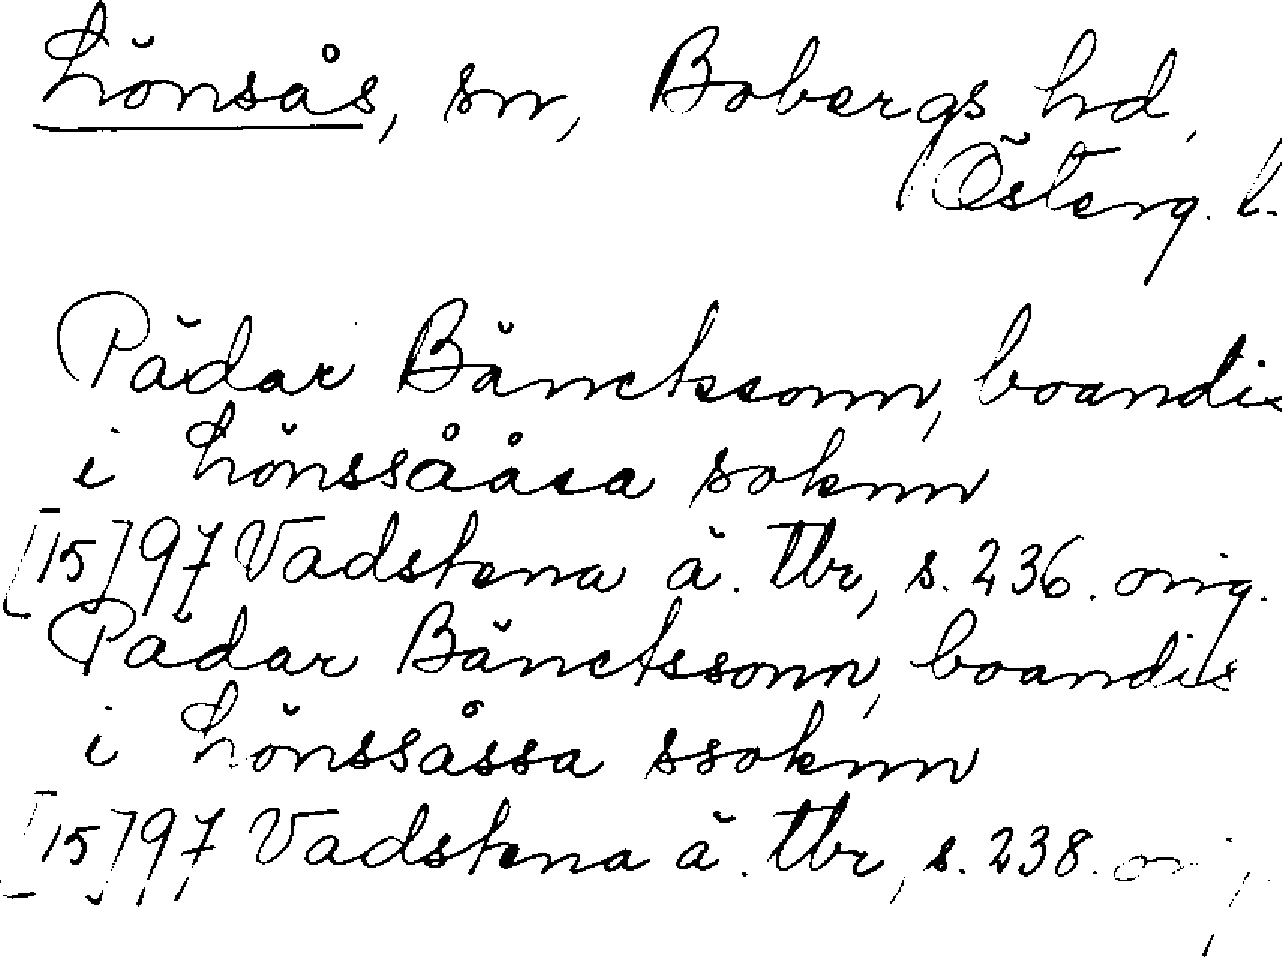 Lönsås, sn, Bobergs hd,
Österg. l.
Pädar Bänctssonn, boandis
i Lönssååsa soknn
[15]97 Vadstena ä. tbr, s. 236. orig.
Pädar Bänctssonn, boandis
i Lönssåssa ssoknn
[15]97 Vadstena ä. tbr, s. 238.